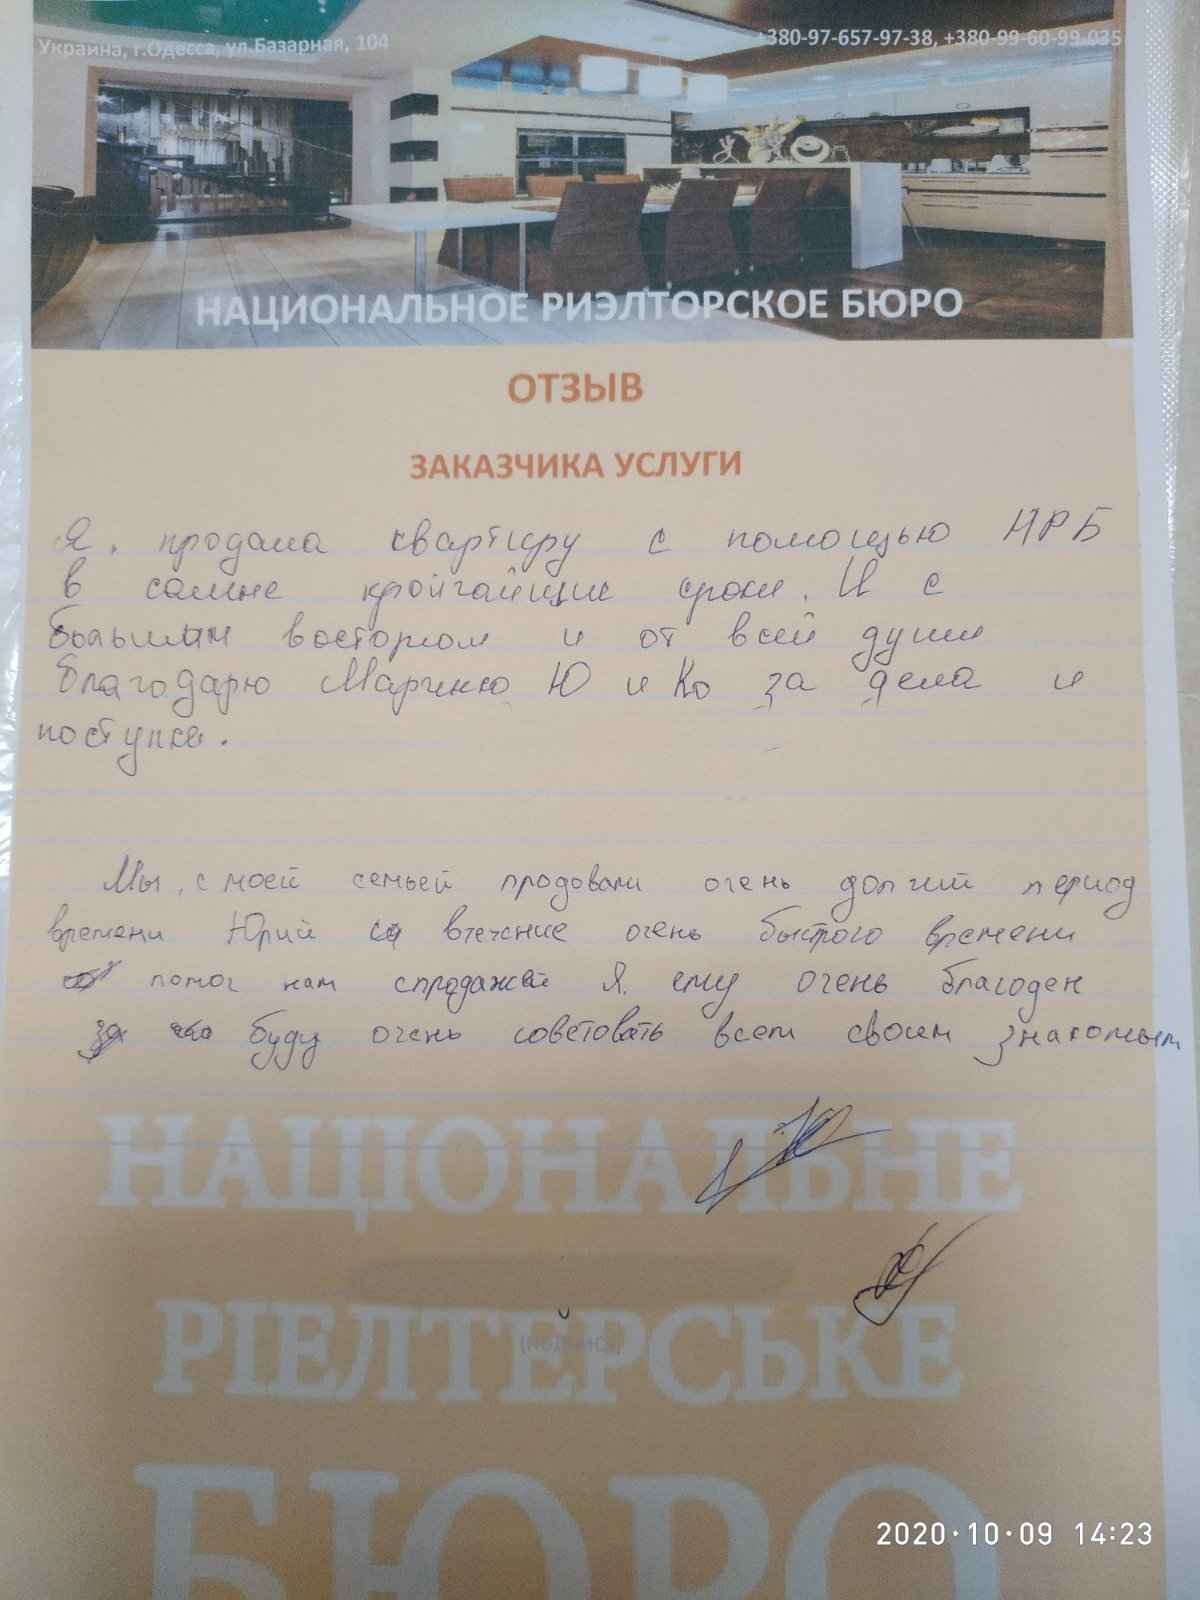 Украина, г.Одесса, ул.Базарная, 104
+380-97-657-97-38, +380-99-60-99-035
НАЦИОНАЛЬНОЕ РИЭЛТОРСКОЕ БЮРО
ОТЗЫВ
ЗАКАЗЧИКА УСЛУГИ
Я. продала квартиру с помощью НРБ
в самые сроки. И с
большим восторгом и от всей души
благодарю Марченко Ю и Ко за дела и
поступки.
Мы, с моей семьей продовали очень долгий период
времени Юрий втечение очень быстрого времени
помог нам спродажей Я. ему очень благоден
буду очень советовать всем своим знакомым
НАЦІОНАЛЬНЕ
РІЕЛТЕРСЬКЕ
(подпись)
БЮРО
2020·10·09 14:23